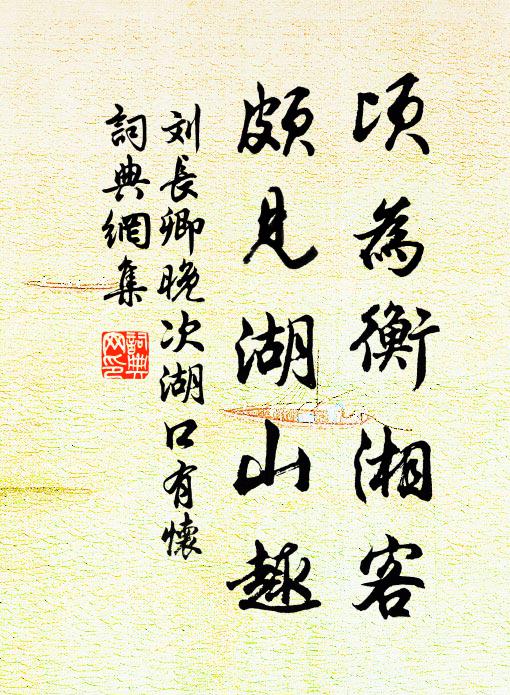 頃為衡湘客
頗見湖山趣
刘長卿晚次湖口有懷
詞典網集
詞典
网印